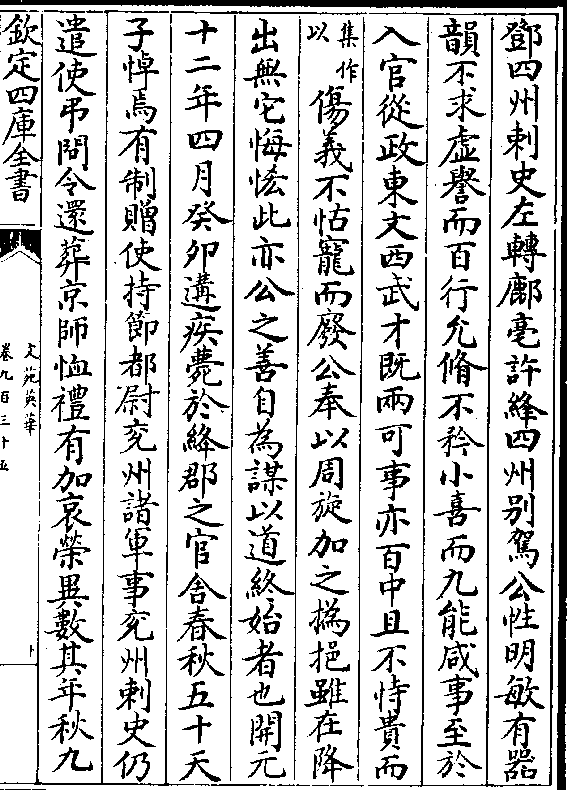 鄧四州刺史左轉鄜亳許絳四州别駕公性明敏有器
韻不求虚譽而百行允脩不矜小喜而九能咸事至於
入官從政東文西武才既兩可事亦百中且不恃貴而
集作以傷義不怙寵而廢公奉以周旋加之撝挹雖在降
出無它悔恡此亦公之善自為謀以道終始者也開元
十二年四月癸卯遘疾薨於絳郡之官舎春秋五十天
子悼焉有制贈使持節都尉兖州諸軍事兖州刺史仍
遣使弔問令還葬京師恤禮有加哀榮異數其年秋九
欽定四庫全書
文苑英華
卷九百三十五